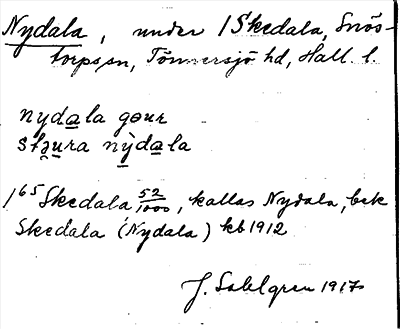 Nydala, under 1 Skedala, Snös-
torps sn, Tönnersjö hd, Hall. l.
nydala gəur
stəura nỳdala
1⁶⁵ Skedala 52/1000, kallas Nydala, bek
Skedala (Nydala) kb 1912
J. Sahlgren 1917